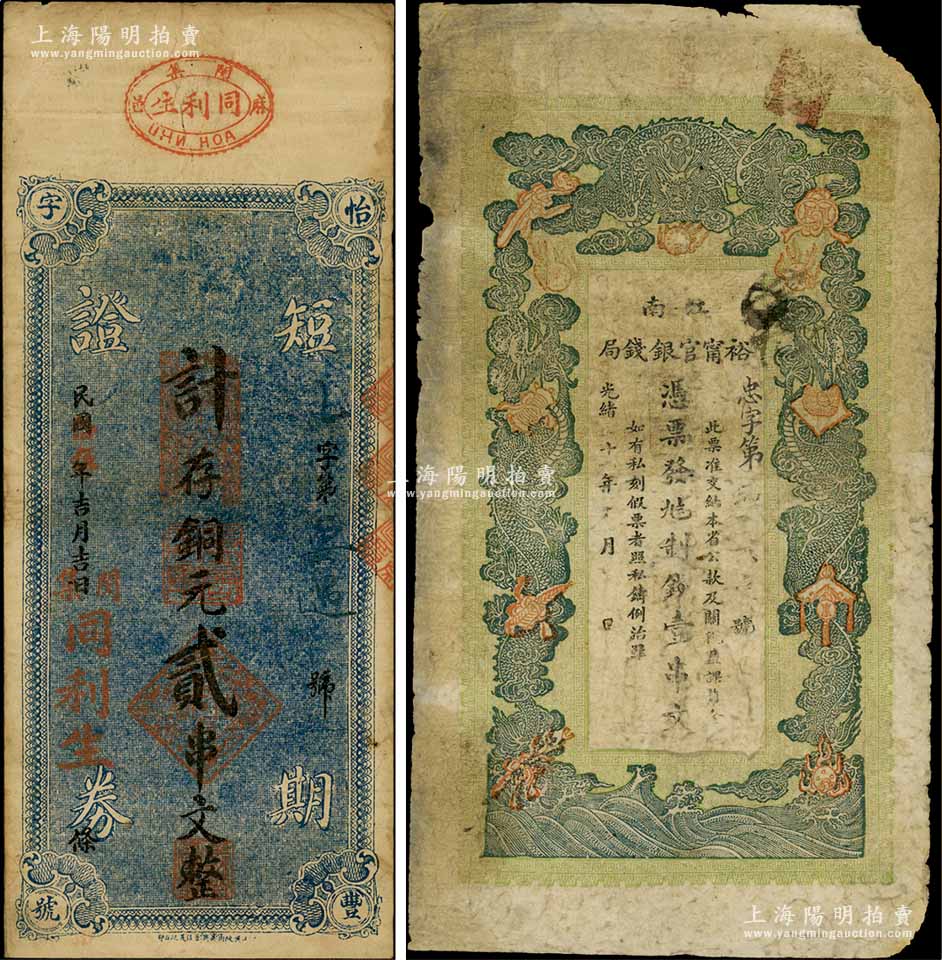 上海陽明拍賣
www.yangmingauction.com
同利生
UHN HOA
怡
字
豐
號
短期
證券
字第
號
計存銅元貳串文整
民國
年吉月吉日
同利生
條
上海陽明拍賣
www.yangmingauction.com
上海陽明拍賣
www.yangmingauction.com
江南
裕甯官銀錢局
忠字第
號
此票准交納本省公款及關
課
憑票發
制錢壹串文
如有私刻假票者照私鑄例治罪
光緒
十年
月
日
上海陽明拍賣
www.yangmingauction.com